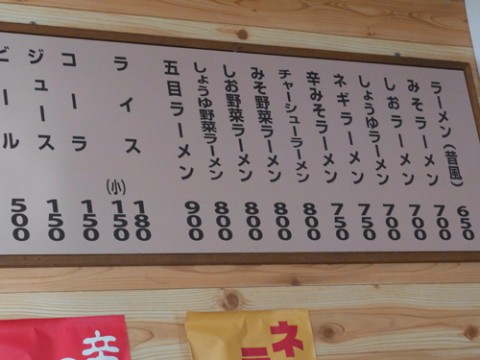 ラーメン(昔風) 650
みそラーメン 700
しおラーメン 700
しょうゆラーメン 700
ネギラーメン 750
辛みそラーメン 750
チャーシューラーメン 800
みそ野菜ラーメン 800
しお野菜ラーメン 800
しょうゆ野菜ラーメン 800
五目ラーメン 900
ライス 180
(小) 150
コーラ 150
ジュース 150
ビール 500
ネ
辛